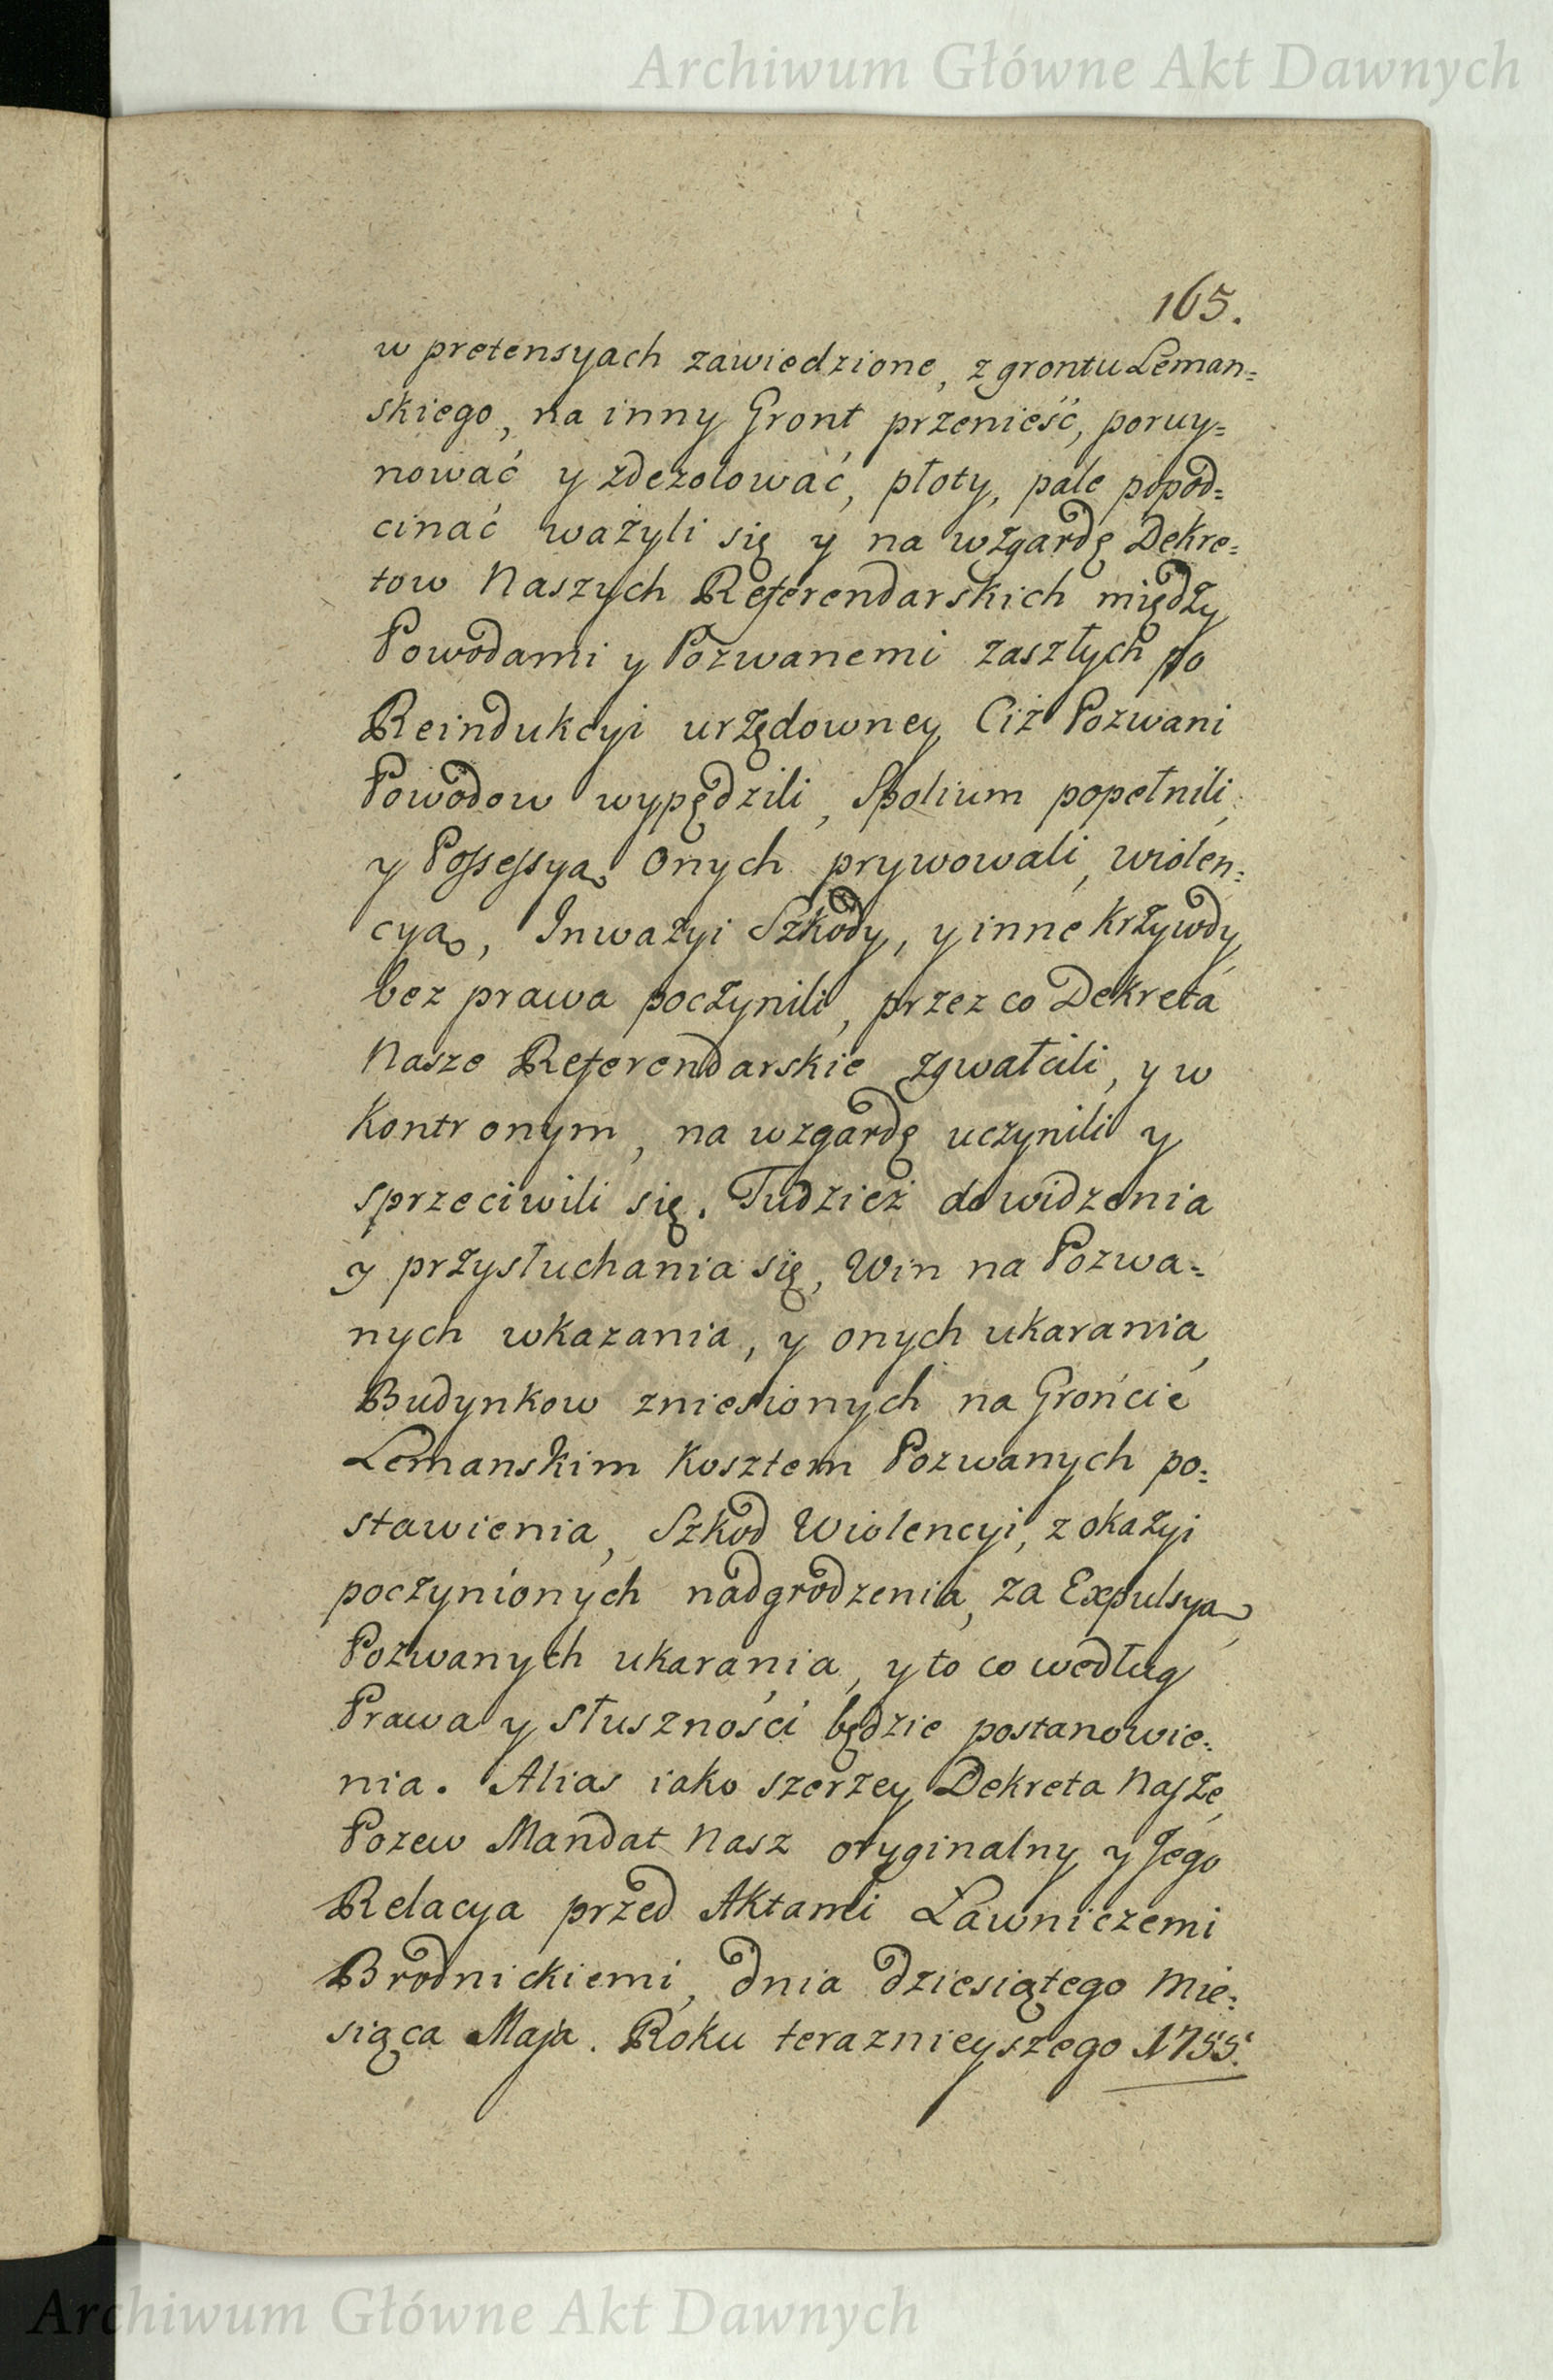 Archiwum Główne Akt Dawnych
165.
w pretensyach zawiedzione, z grontu Leman=
skiego, na inny Gront przenieść, poruy=
nować y zdezolować, płoty, pale popod=
cinać ważyli się y na wzgardę Dekre=
tow Naszych Referendarskich między
Powodami y Pozwanemi zaszłych po
Reindukcyi urzędowney Ciż Pozwani
Powodow wypędzili, Spolium popełnili,
y Possessyą onych prywowali, wiolen=
cyą, Inwazyi Szkody, y inne krzywdy,
bez prawa poczynili, przez co Dekreta
Nasze Referendarskie zgwałcili, y w
Kontr onym, na wzgardę uczynili y
sprzeciwili się. Tudzież do widzenia
y przysłuchania się, Win na Pozwa=
nych wkazania, y onych ukarania,
Budynkow zniesionych na Grońcie
Lemanskim Kosztem Pozwanych po=
stawienia, Szkod Wiolencyi, z okazyi
poczynionych nadgrodzenia, za Expulsyą,
Pozwanych ukarania, y to co według
Prawa y słuszności będzie postanowie=
nia. Alias iako szerzey Dekreta Nasze,
Pozew Mandat Nasz oryginalny y Jego
Relacya przed Aktami Ławniczemi
Brodnickiemi, dnia dziesiątego Mie=
siąca Maja. Roku teraznieyszego 1755.
Archiwum Główne Akt Dawnych